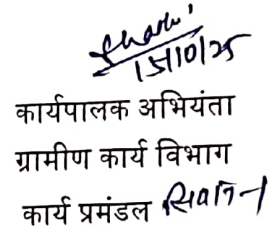 15/10/25
कार्यपालक अभियंता
ग्रामीण कार्य विभाग
कार्य प्रमंडल सिवान-1